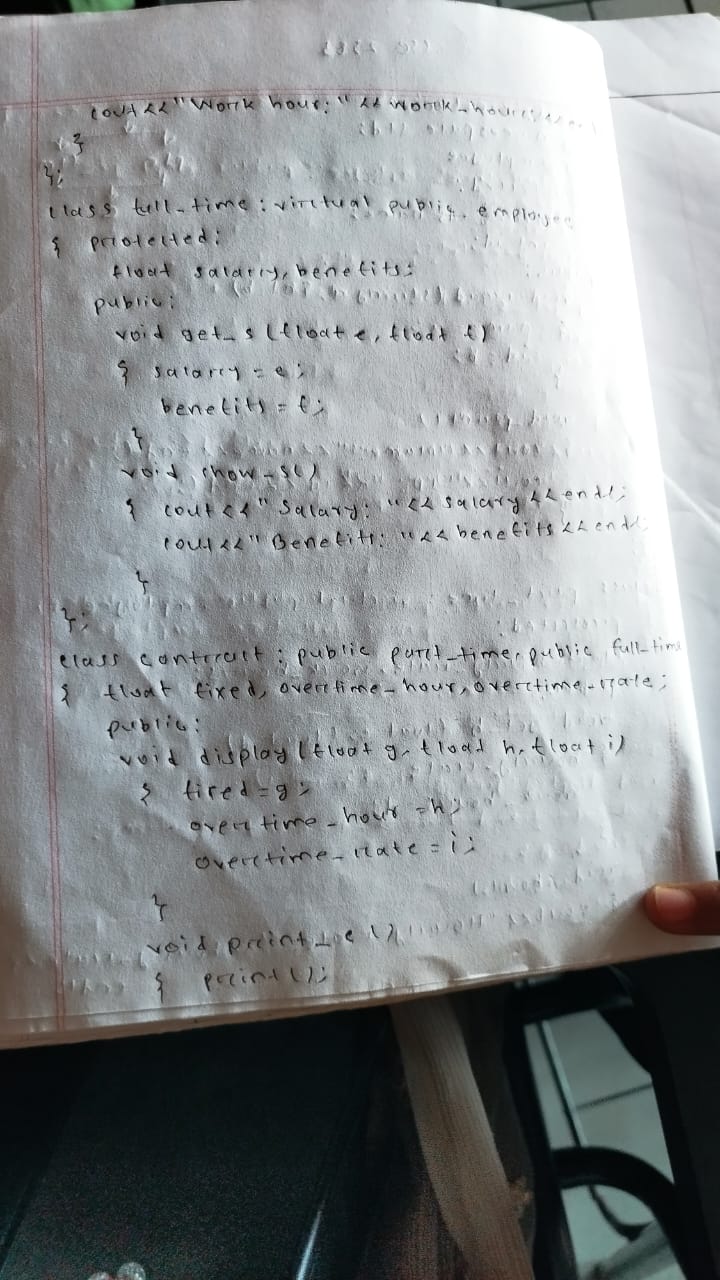 cout<<"Work hour: "<< work_hour<<
}
};
class full_time : virtual public employee
{ protected:
float salary, benefits;
public:
void get_s (float e, float f)
{ salary = e;
benefits = f;
}
void show_s()
{ cout<<" Salary: "<< salary << endl;
cout<<" Benefits: "<< benefits << endl;
}
};
class contract : public part_time, public full_time
{ float fixed, overtime_hour, overtime_rate;
public:
void display (float g, float h, float i)
{ fixed = g;
overtime_hour = h;
overtime_rate = i;
}
void print_e ()
{ print();